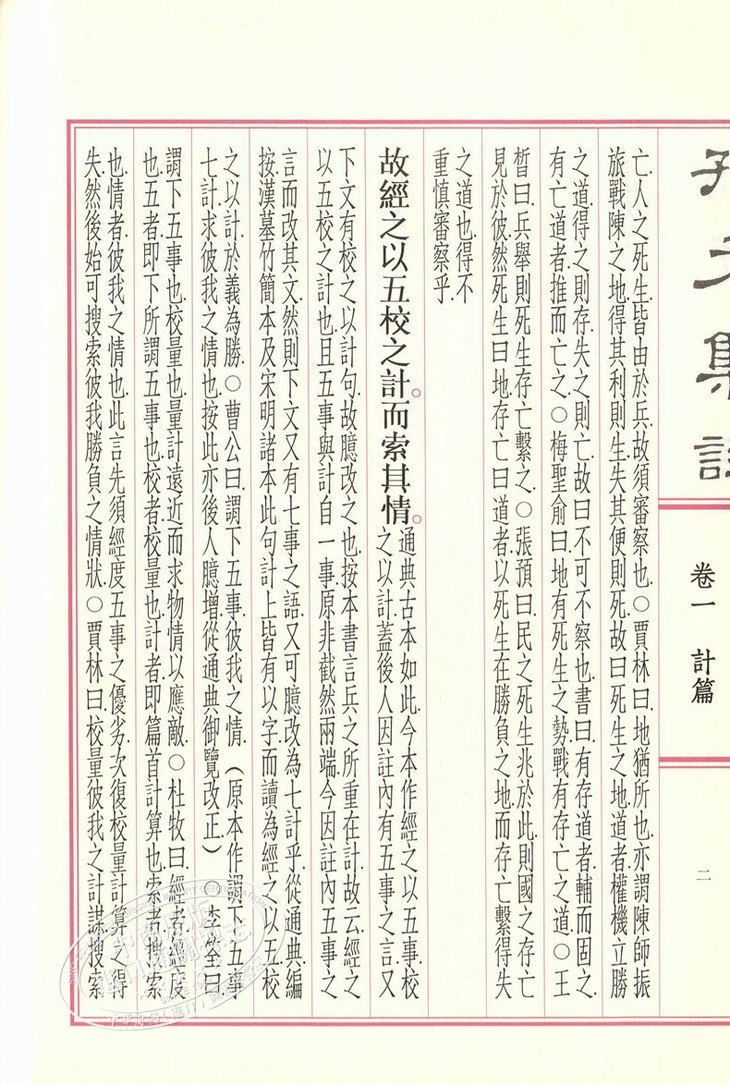 孫子集註
卷一 計篇
二
亡人之死生皆由於兵故須審察也○賈林曰地猶所也亦謂陳師振
旅戰陳之地得其利則生失其便則死故曰死生之地道者權機立勝
之道得之則存失之則亡故曰不可不察也書曰有存道者輔而固之
有亡道者推而亡之○梅聖俞曰地有死生之勢戰有存亡之道○王
晳曰兵舉則死生存亡繫之○張預曰民之死生兆於此則國之存亡
見於彼然死生曰地存亡曰道者以死生在勝負之地而存亡繫得失
之道也得不
重慎審察乎
故經之以五校之計。而索其情。
通典古本如此今本作經之以五事校
之以計蓋後人因註內有五事之言又
下文有校之以計句故臆改之也按本書言兵之所重在計故云經之
以五校之計也且五事與計自一事原非截然兩端今因註內五事之
言而改其文然則下文又有七事之語又可臆改為七計乎從通典編
按漢墓竹簡本及宋明諸本此句計上皆有以字而讀為經之以五校
之以計於義為勝○曹公曰謂下五事彼我之情（原本作謂下五事
七計求彼我之情也按此亦後人臆增從通典御覽改正）○李筌曰
謂下五事也校量也量計遠近而求物情以應敵○杜牧曰經者經度
也五者即下所謂五事也校者校量也計者即篇首計算也索者搜索
也情者彼我之情也此言先須經度五事之優劣次復校量計算之得
失然後始可搜索彼我勝負之情狀○賈林曰校量彼我之計謀搜索